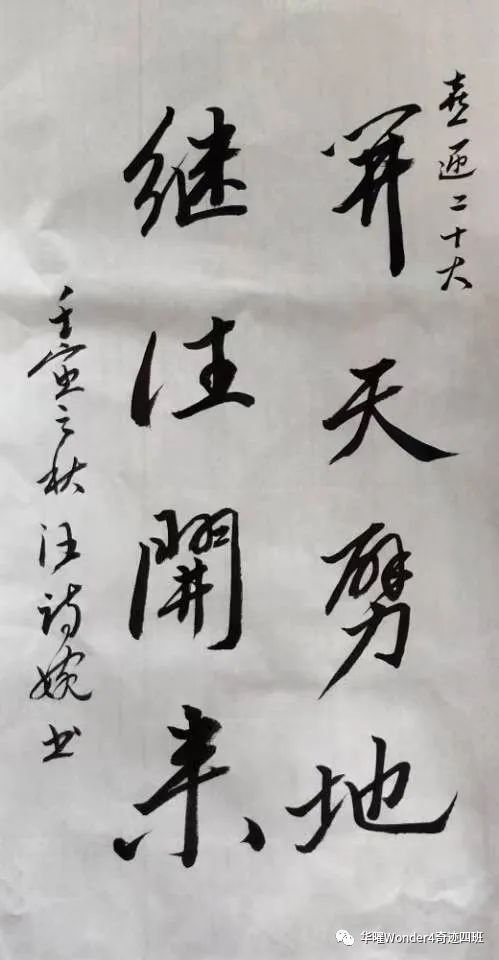 喜迎二十大
開天劈地
继往開来
壬寅之秋汪诗婉书
华曜Wonder4奇迹四班